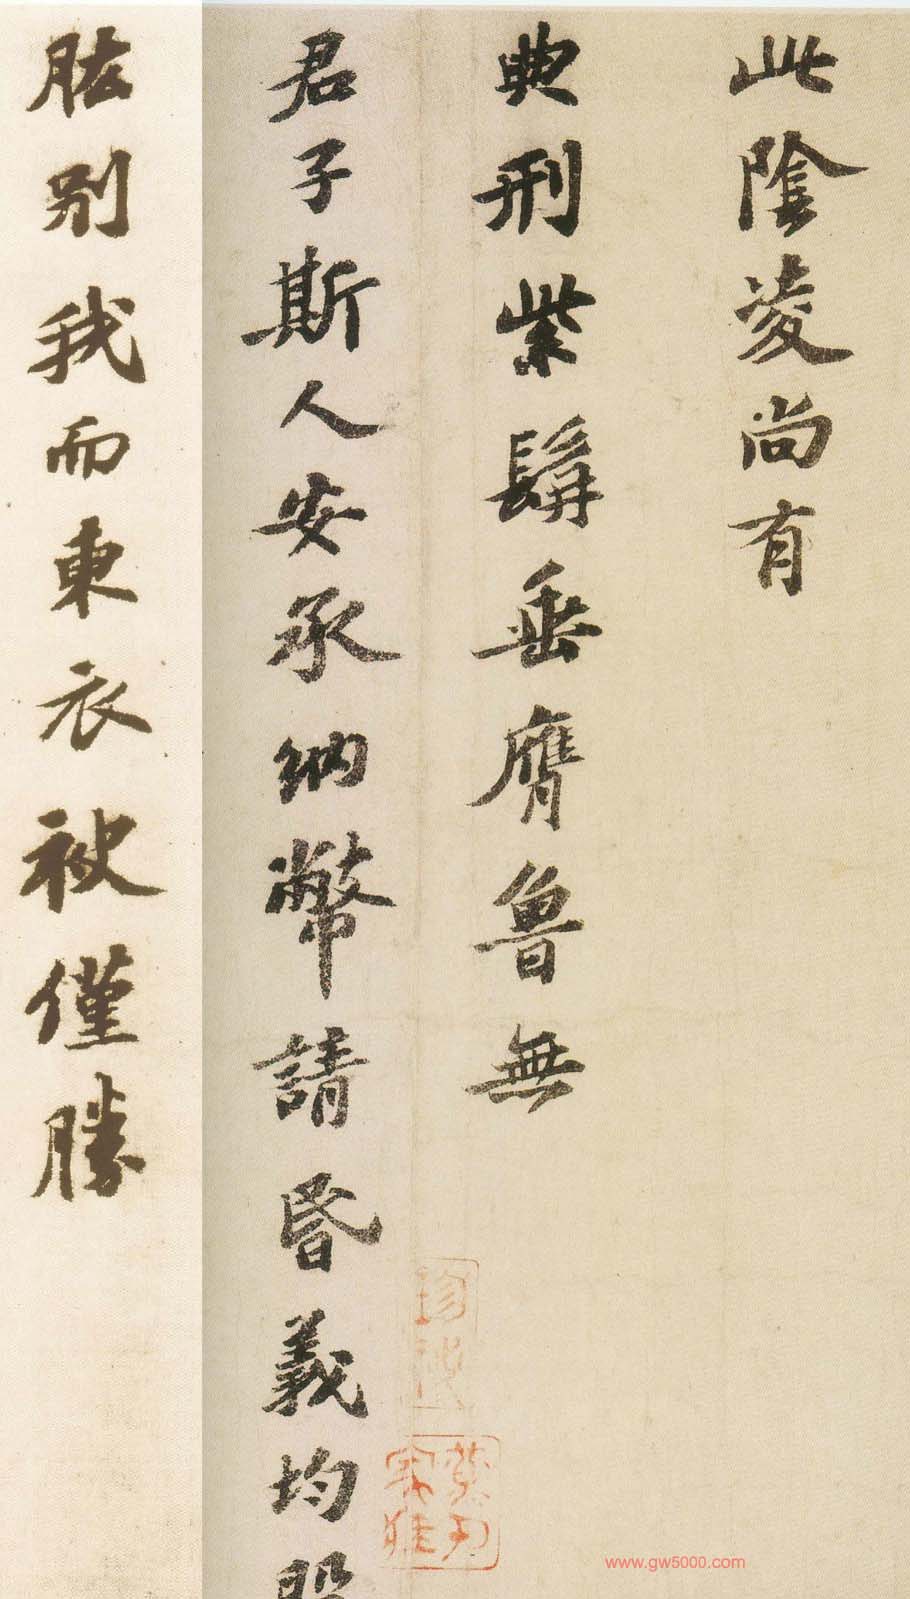 此陰凌尚有
典刑紫髯垂膺魯無
君子斯人安承納幣請昏義均股
肱別我而東衣袂僅勝
www.gw5000.com